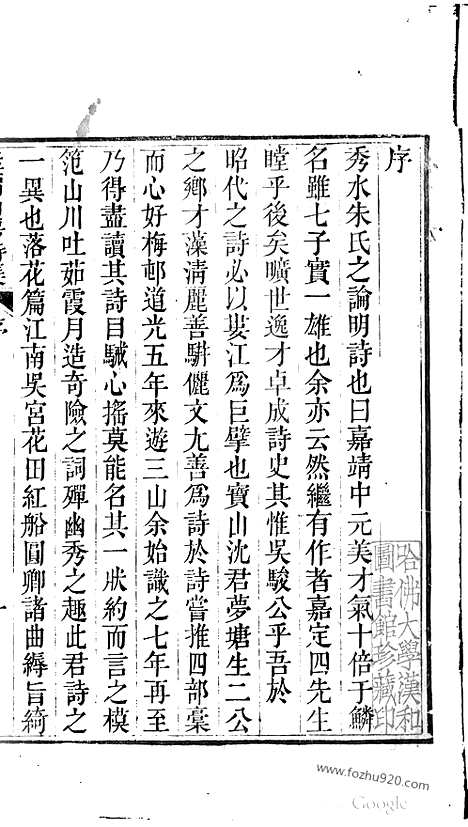 序
秀水朱氏之論明詩也曰嘉靖中元美才氣十倍于鱗
名雖七子實一雄也余亦云然繼有作者嘉定四先生
瞠乎後矣曠世逸才卓成詩史其惟吳駿公乎吾於
昭代之詩必以婁江爲巨擘也寶山沈君夢塘生二公
之鄉才藻淸麗善騈儷文尢善爲詩於詩嘗推四部稾
而心好梅邨道光五年來遊三山余始識之七年再至
乃得盡讀其詩目駴心搖莫能名其一狀約而言之模
笵山川吐茹霞月造奇險之詞殫幽秀之趣此君詩之
一異也落花篇江南吳宮花田紅船圓卿諸曲縟旨綺
序
一
哈佛大學漢和
圖書館珍藏印
www.fozhu920.com
Google